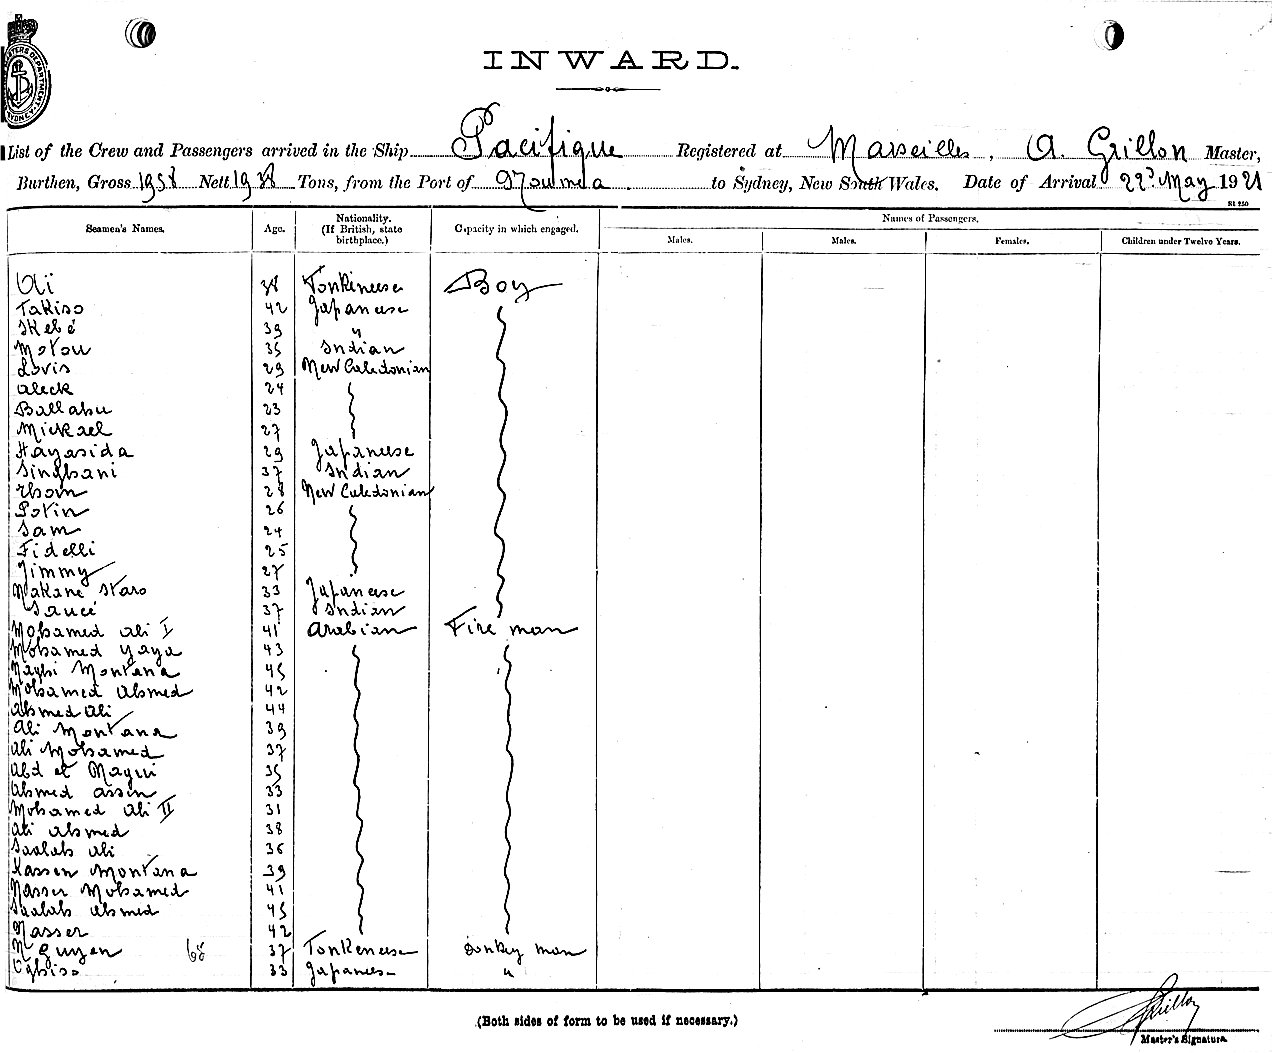 INWARD.
List of the Crew and Passengers arrived in the Ship Pacifique Registered at Marseilles, A. Grillon Master,
Burthen, Gross 1938 Nett 1938 Tons, from the Port of Noumea to Sydney, New South Wales. Date of Arrival 22d May 1921
Seamen's Names. Age. Nationality. (If British, state birthplace.) Capacity in which engaged. Names of Passengers.
Males. Males. Females. Children under Twelve Years.
38 Tonkinese Boy
Takiso 42 Japanese
Skebé 39 "
Motou 35 Indian
Lovis 29 New Caledonian
Aleck 24
Ballahu 23
Mickael 27
Hayasida 29 Japanese
Singhani 37 Indian
Thom 28 New Caledonian
Potin 26
Sam 24
Fidelli 25
Jimmy 27
Nakane 33 Japanese
Saucé 37 Indian
Mohamed Ali I 41 Arabian Fire man
Mohamed Yaya 43
Naghi Montana 45
Mohamed Ahmed 42
Ahmed Ali 44
Ali Montana 39
Ali Mohamed 37
Abd el Magui 35
Ahmed Assen 33
Mohamed Ali II 31
Ali Ahmed 38
Saalah Ali 36
Kassen Montana 39
Nasser Mohamed 41
Saalah Ahmed 45
Nasser 42
N'guyen 37 Tonkenese Donkey man
33 Japanes "
(Both sides of form to be used if necessary.)
AGrillon
Master's Signature.